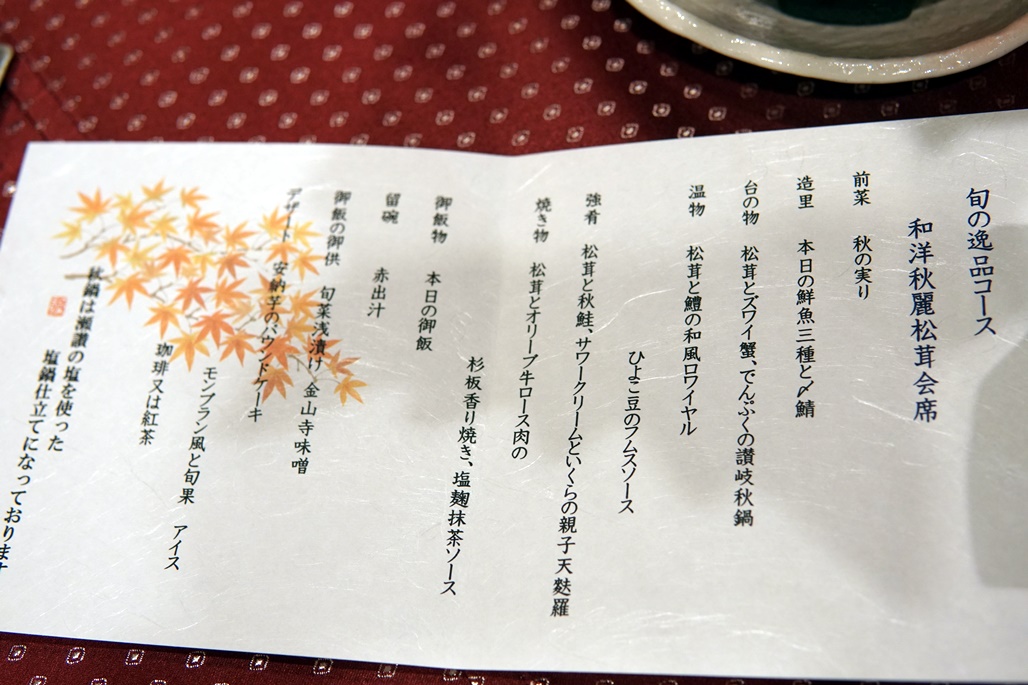 旬の逸品コース
和洋秋麗松茸会席
前菜 秋の実り
造里 本日の鮮魚三種と〆鯖
台の物 松茸とズワイ蟹、でんぷくの讃岐秋鍋
温物 松茸と鱧の和風ロワイヤル
ひよこ豆のフムスソース
強肴 松茸と秋鮭、サワークリームといくらの親子天麩羅
焼き物 松茸とオリーブ牛ロース肉の
杉板香り焼き、塩麹抹茶ソース
御飯物 本日の御飯
留碗 赤出汁
御飯の御供 旬菜浅漬け 金山寺味噌
デザート 安納芋のパウンドケーキ
モンブラン風と旬果 アイス
珈琲又は紅茶
は瀬讃の塩を使った
塩 仕立てになっております